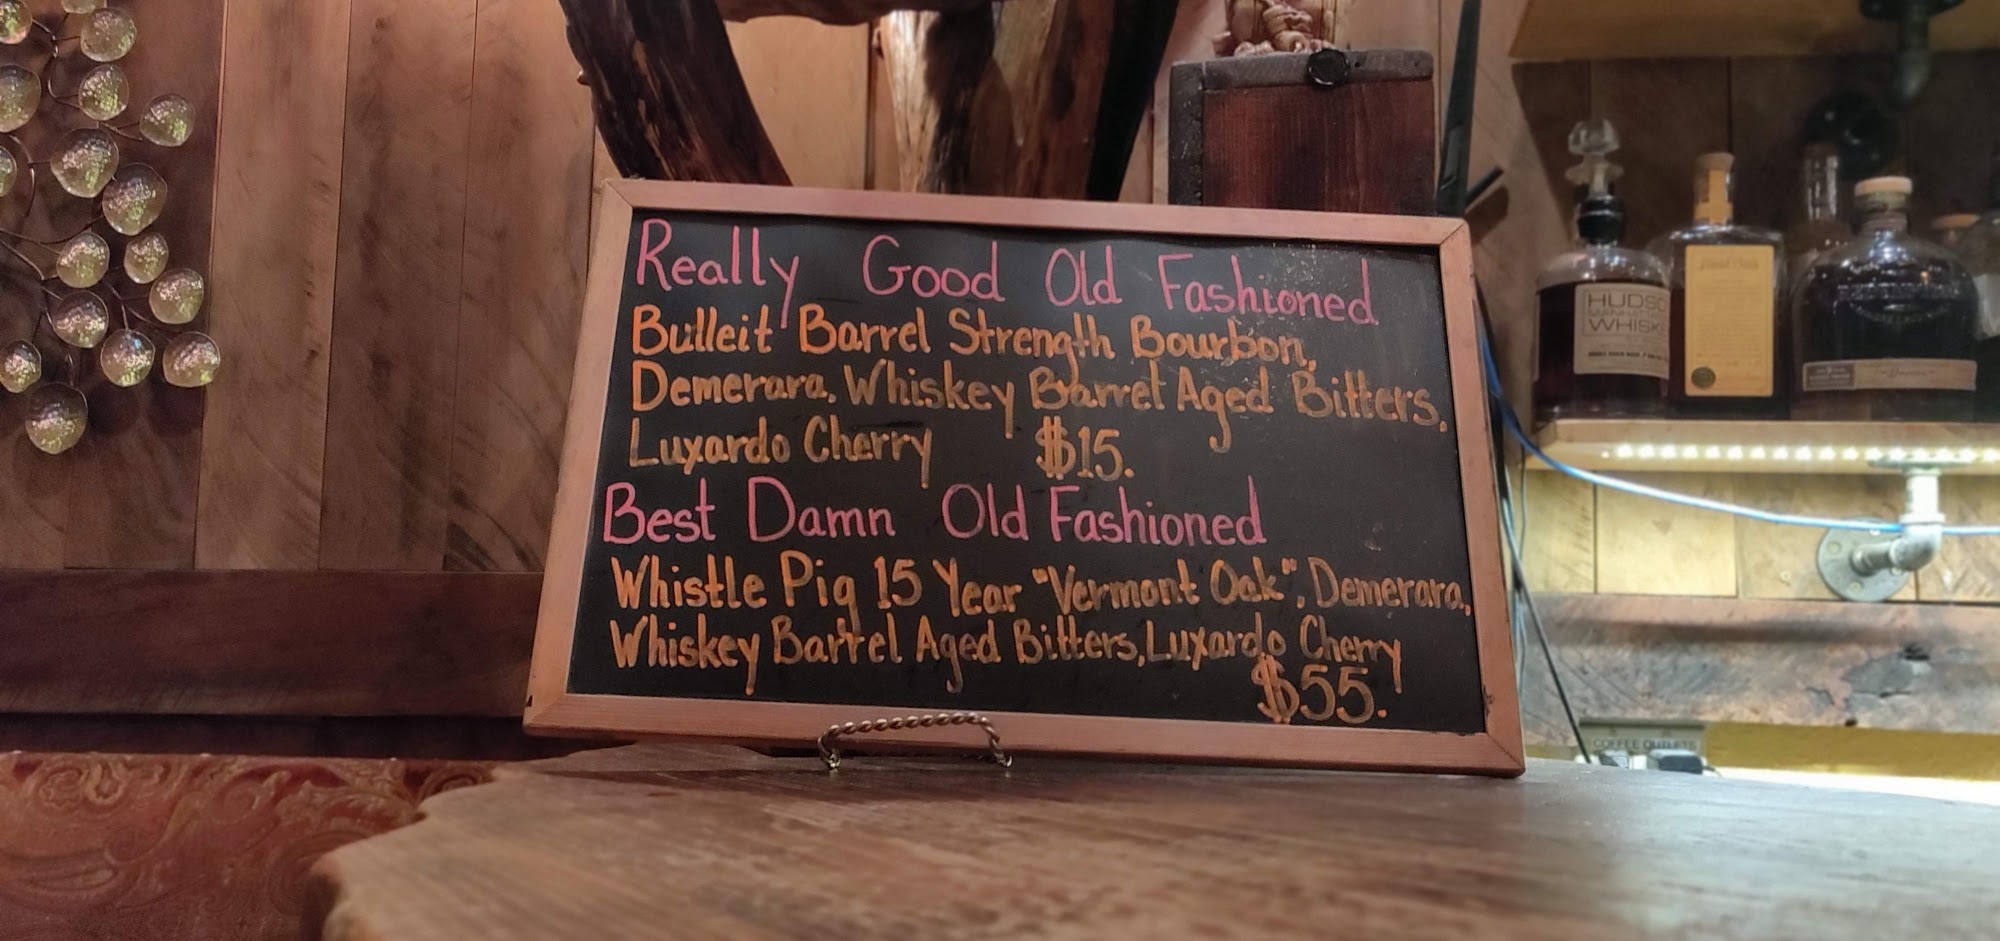 Really Good Old Fashioned
Bulleit Barrel Strength Bourbon,
Demerara, Whiskey Barrel Aged Bitters,
Luxardo Cherry $15.
Best Damn Old Fashioned
Whistle Pig 15 Year "Vermont Oak", Demerara,
Whiskey Barrel Aged Bitters, Luxardo Cherry
$55.
HUDSO
MANHATTAN
WHISKE
COFFEE OUTLETS